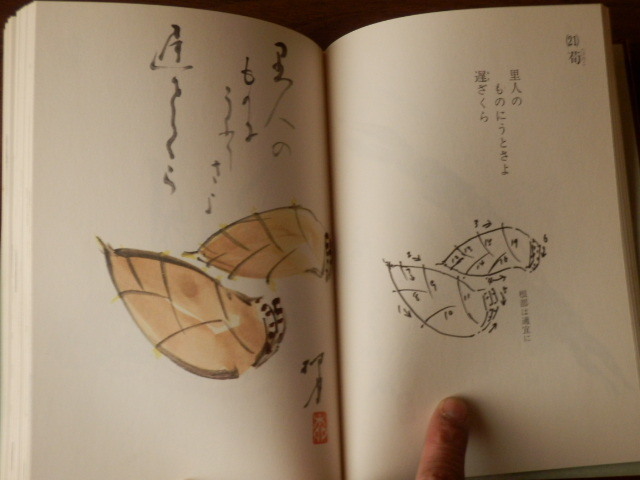 (21) 筍
里人の
ものにうとさよ
遅ざくら
根部は適宜に
里人の
ものに
うとさよ
遅ざくら